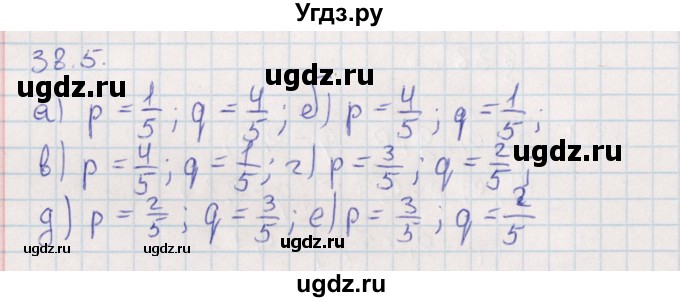 Угдз.ру
38.5.
ugdz.ru ugdz.ru
а) p = 1/5; q = 4/5; б) p = 4/5; q = 1/5;
ugdz.ru
в) p = 4/5; q = 1/5; г) p = 3/5; q = 2/5;
ugdz.ru ugdz.ru
д) p = 2/5; q = 3/5; е) p = 3/5; q = 2/5
ugdz.ru ugdz.ru
ugdz.ru